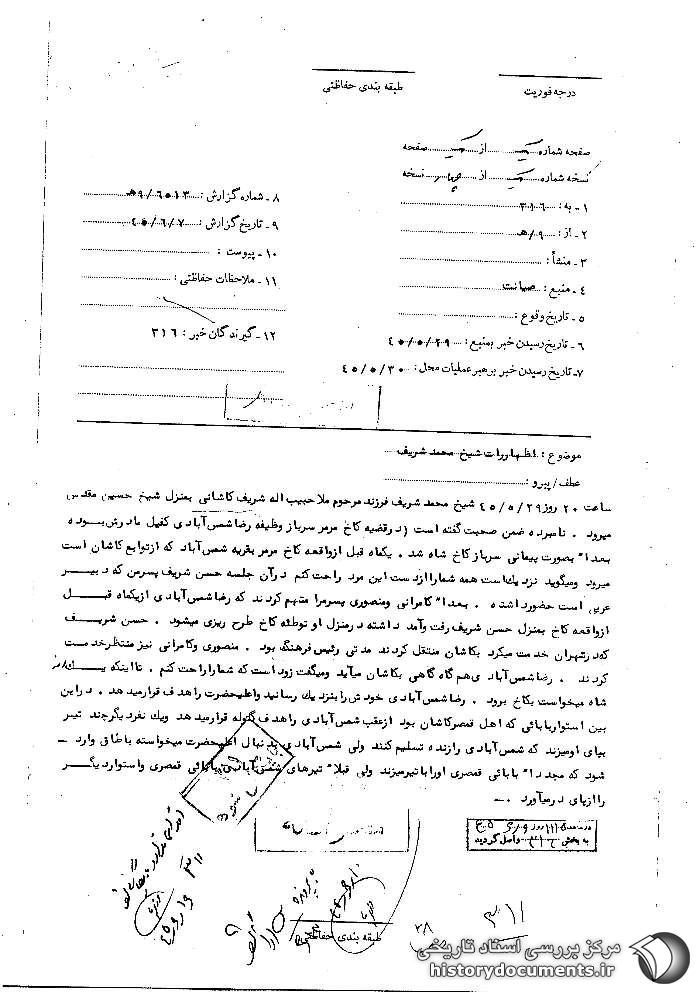 درجه فوریت
طبقه بندی حفاظتی
صفحه شماره یک از یک صفحه
نسخه شماره یک از چهار نسخه
۱ - به : ۳۱۶
۲ - از : ۹/هـ
۳ - منشأ :
۴ - منبع : صیانت
۵ - تاریخ وقوع :
۶ - تاریخ رسیدن خبر بمنبع : ۴۵/۵/۲۹
۷ - تاریخ رسیدن خبر برهبر عملیات محل : ۴۵/۵/۳۰
۸ - شماره گزارش : ۹/۶۵۱۳هـ
۹ - تاریخ گزارش : ۴۵/۶/۷
۱۰ - پیوست :
۱۱ - ملاحظات حفاظتی :
۱۲ - گیرندگان خبر : ۳۱۶
موضوع : اظهارات شیخ محمد شریف
عطف/ پیرو :
ساعت ۲۰ روز ۴۵/۵/۲۹ شیخ محمد شریف فرزند مرحوم ملا حبیب اله شریف کاشانی بمنزل شیخ حسین مقدس
میرود . نامبرده ضمن صحبت گفته است (در قضیه کاخ مرمر سرباز وظیفه رضا شمس آبادی کفیل مادرش بوده
بعدا" بصورت پیمانی سرباز کاخ شاه شد . یکماه قبل از واقعه کاخ مرمر بقریه شمس آباد که از توابع کاشان است
میرود و میگوید نزدیک است همه شما را از دست این مرد راحت کنم در آن جلسه حسن شریف پسر من که دبیر
عربی است حضور داشته . بعدا" کامرانی و منصوری پسر مرا متهم کردند که رضا شمس آبادی از یکماه قبل
از واقعه کاخ بمنزل حسن شریف رفت و آمد داشته در منزل او توطئه کاخ طرح ریزی میشود . حسن شریف
که در تهران خدمت میکرد بکاشان منتقل کردند مدتی رئیس فرهنگ بود . منصوری و کامرانی نیز منتظر خدمت
کردند . رضا شمس آبادی هم گاه گاهی بکاشان میآید و میگفت زود است که شما را راحت کنم . تا اینکه یک
شاه میخواست بکاخ برود . رضا شمس آبادی خودش را بنزدیک رسانید و اعلیحضرت را هدف قرار میدهد . در این
بین استوار بابائی که اهل قمصر کاشان بود از عقب شمس آبادی را هدف گلوله قرار میدهد و یک نفر دیگر چند تیر
بپای او میزند که شمس آبادی را زنده تسلیم کنند ولی شمس آبادی بدنبال اعلیحضرت میخواسته باطاق وارد -
شود که مجددا" بابائی قمصری او را با تیر میزند ولی قبلا" تیرهای شمس آبادی بابائی قمصری و استوار دیگر
را از پای در میآورد . -
به بخش ۳۱۶ واصل گردید
طبقه بندی حفاظتی
۲۸
مرکز بررسی اسناد تاریخی
historydocuments.ir